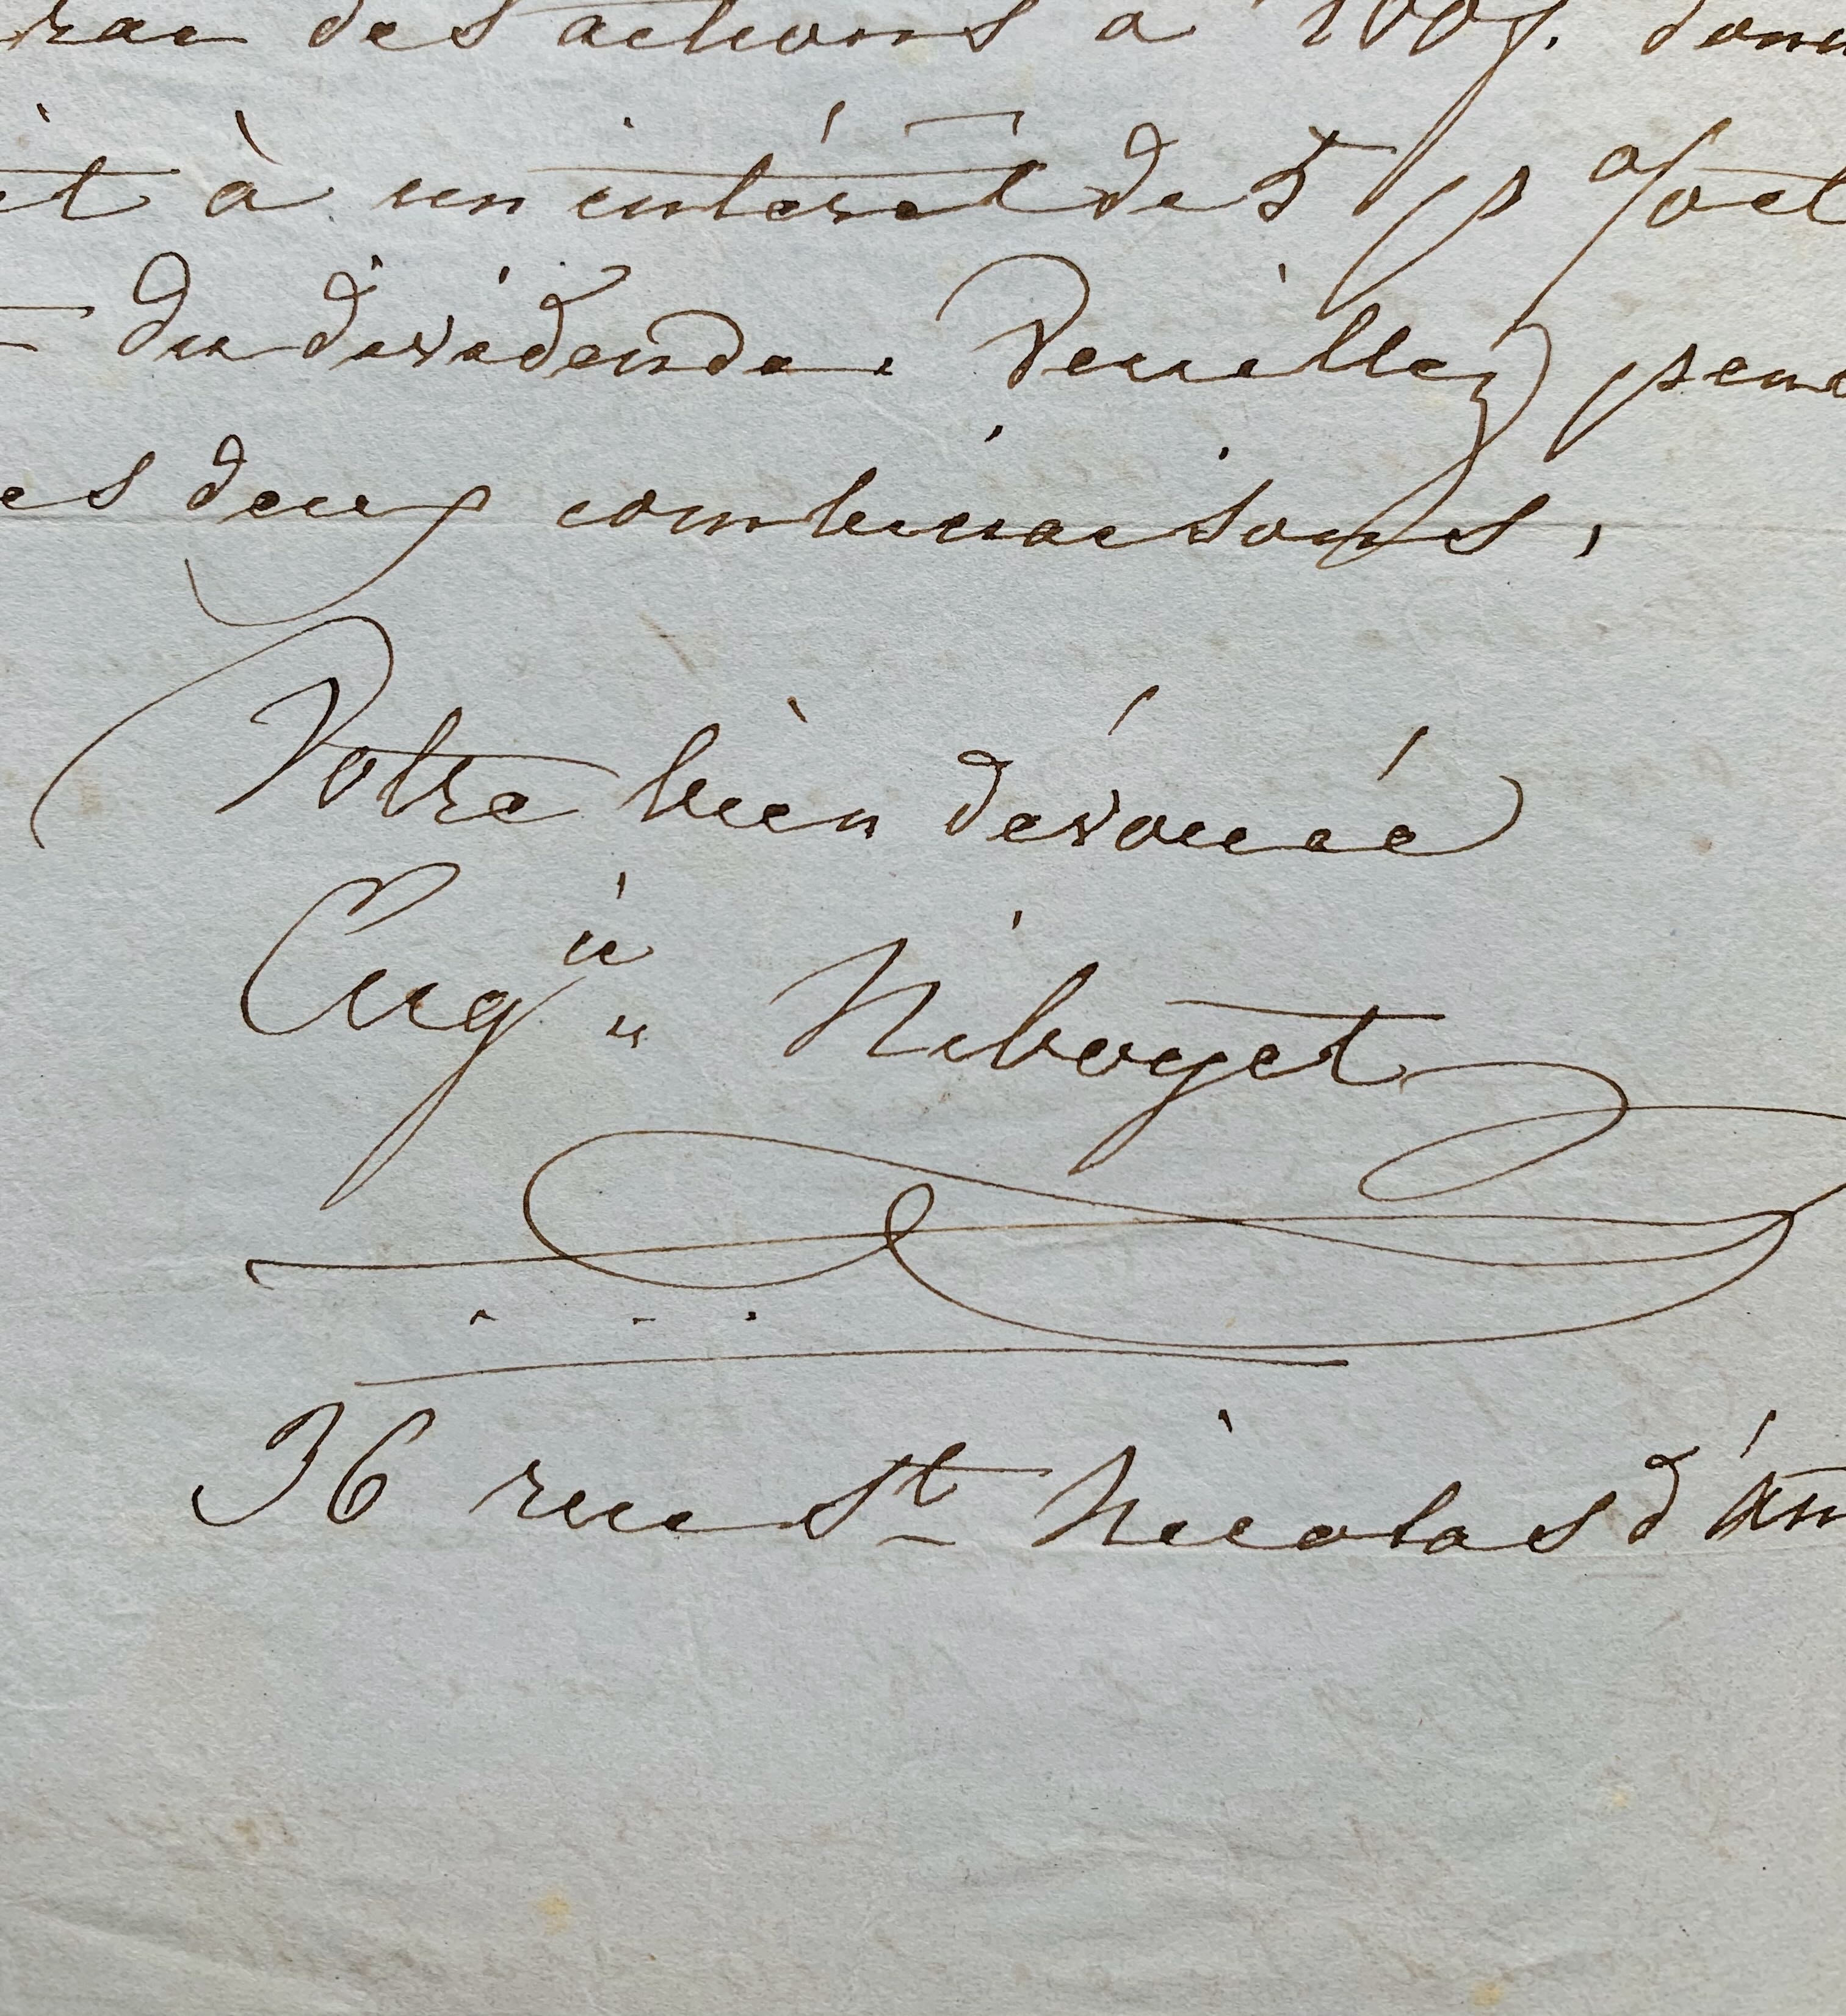 des actions à 100f. donn
et à un intérêt de 5 p % et
du dividende. Veuillez pens
es deux combinaisons,
Votre bien dévouée
Eugie Niboyet
36 rue St Nicolas d'An